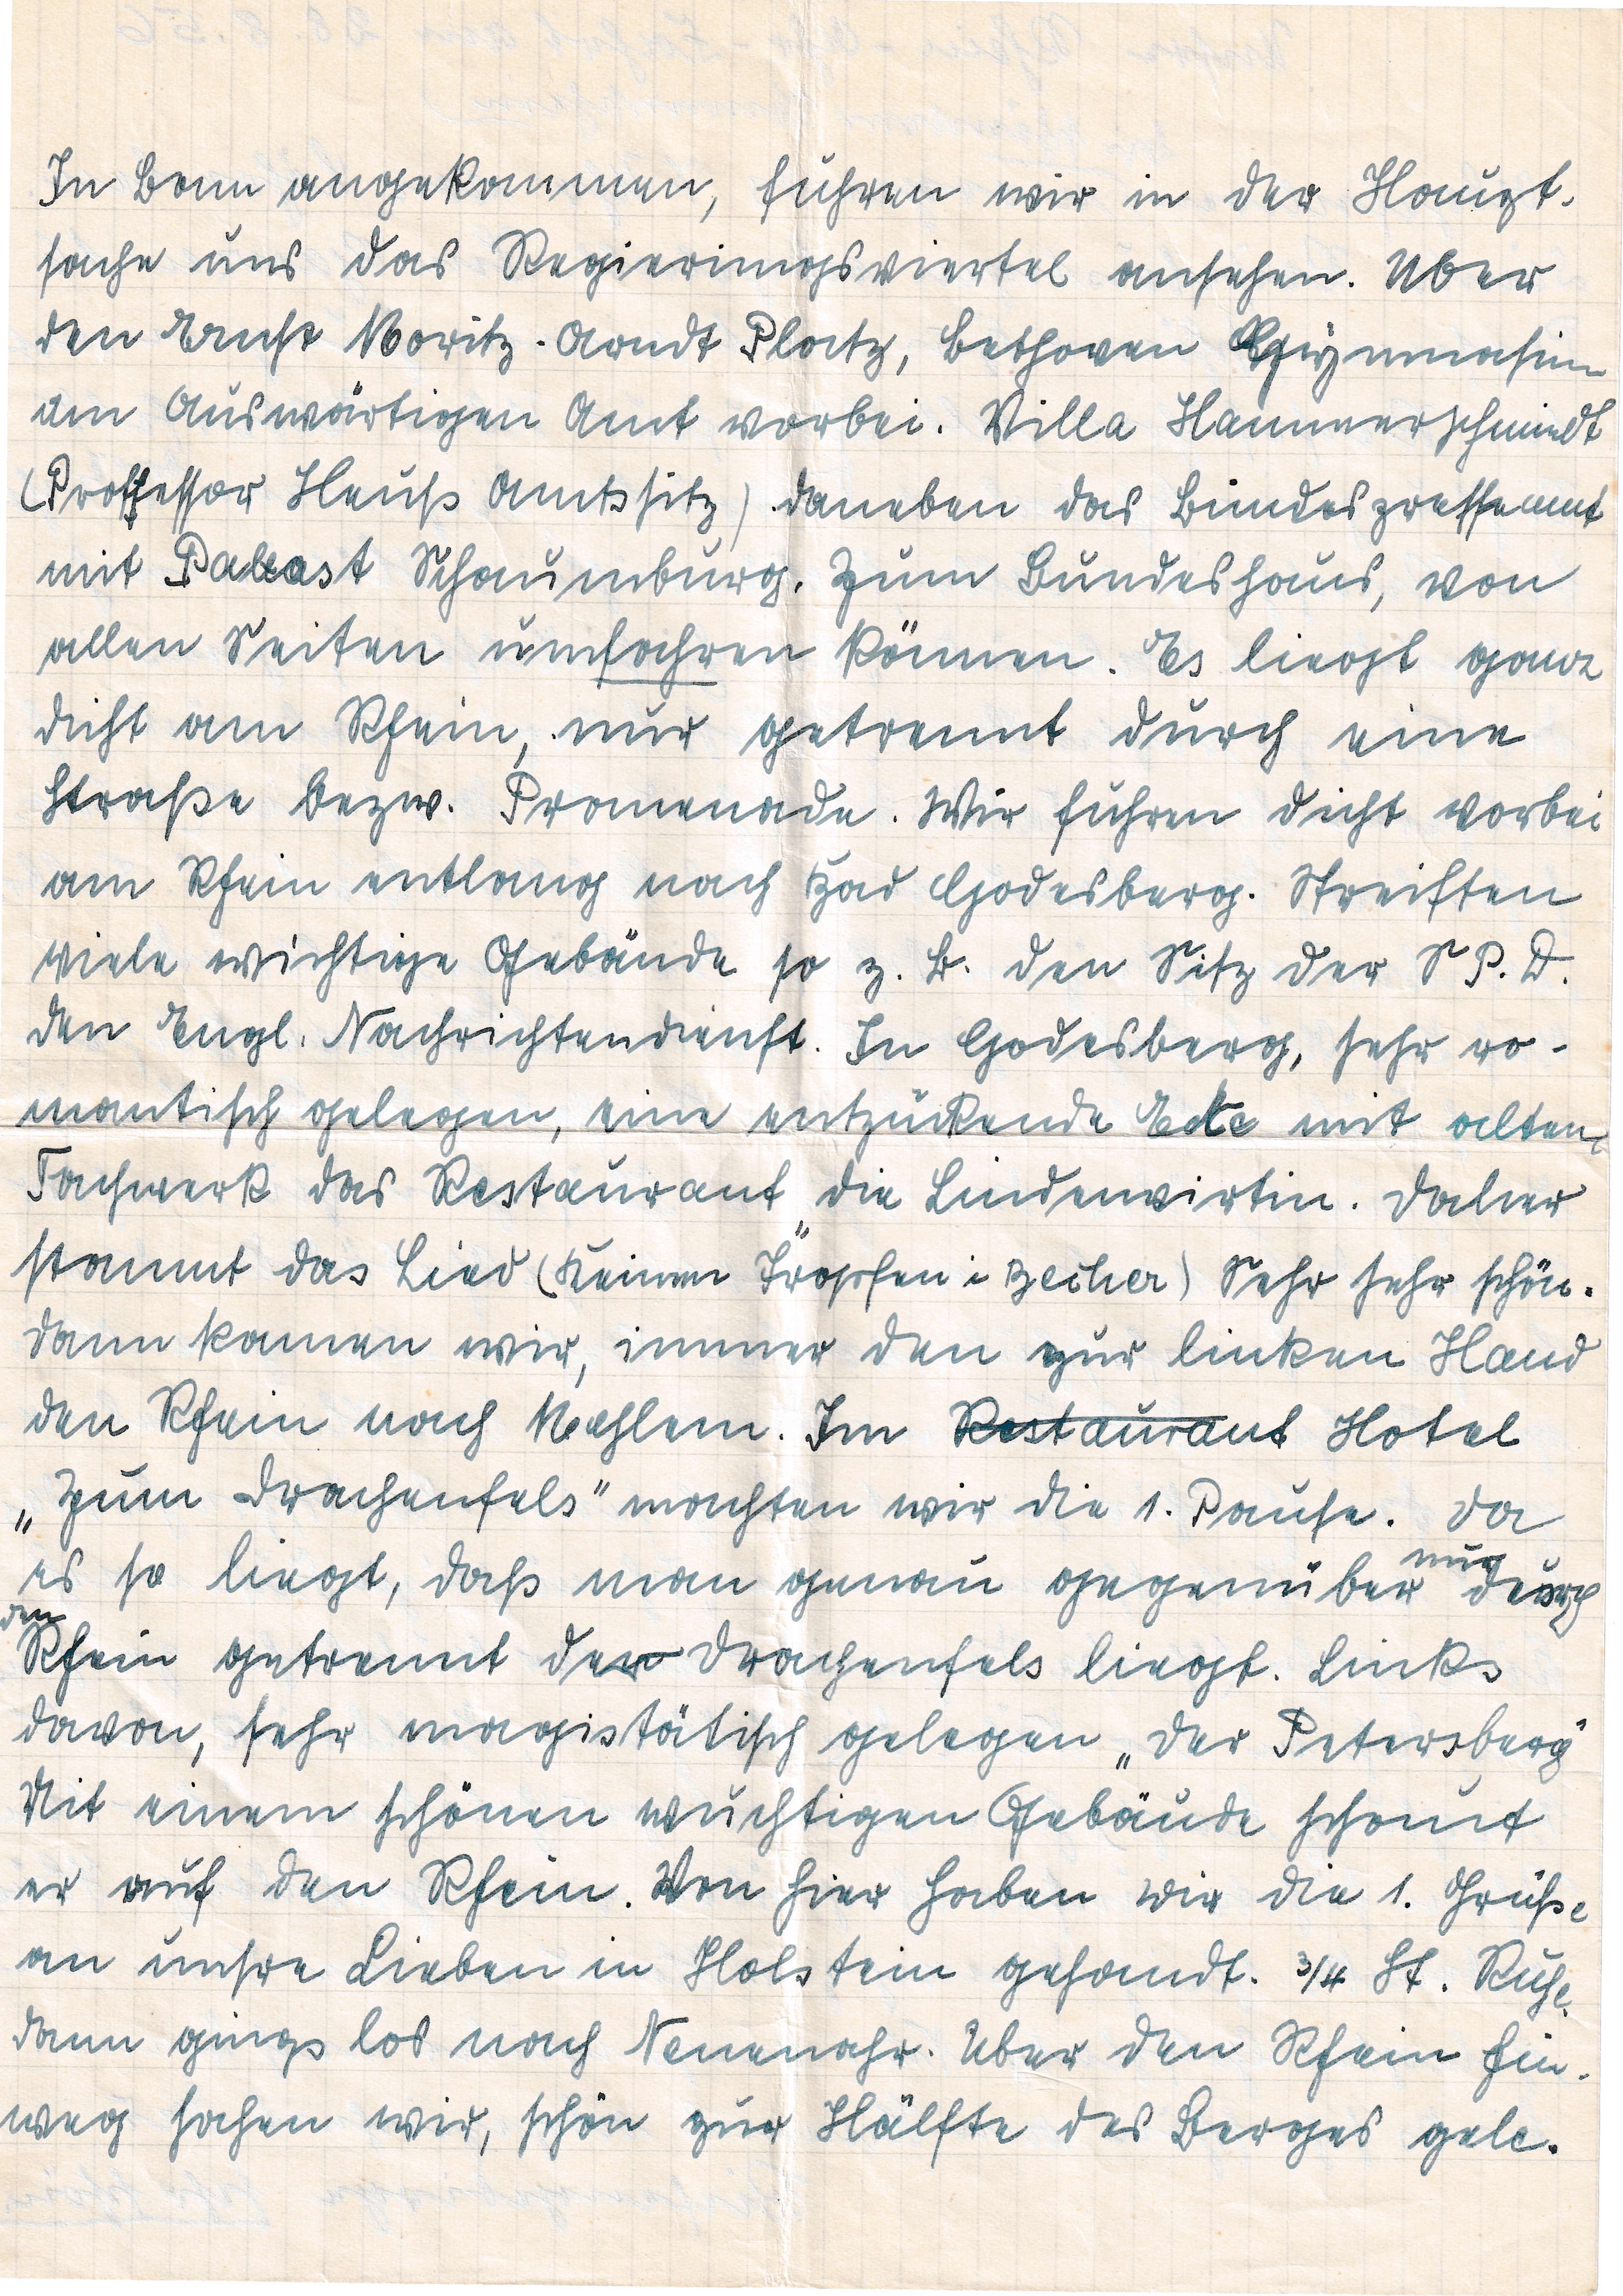 In Bonn angekommen, fuhren wir in der Haupt-
sache uns das Regierungsviertel ansehen. Über
den Ernst Moritz-Arndt Platz, Bethoven Gymnasium
am Auswärtigen Amt vorbei. Villa Hammerschmidt
(Proffessor Heuß Amtssitz) daneben das Bundespresseamt
mit Palast Schaumburg. Zum Bundeshaus, von
allen Seiten umfahren können. Es liegt ganz
dicht am Rhein, nur getrennt durch eine
Straße bezw. Promenade. Wir fuhren dicht vorbei
am Rhein entlang nach Bad Godesberg. Streiften
viele wichtige Gebäude so z. B. den Sitz der S P. D.
den Engl. Nachrichtendienst. In Godesberg, sehr ro-
mantisch gelegen, eine entzückende Ecke mit alten
Fachwerk das Restaurant „die Lindenwirtin. Daher
stammt das Lied (Keinen Tropfen i Becher) Sehr sehr schön.
Dann kamen wir, immer den zur linken Hand
den Rhein nach Mehlem. Im Restaurant Hotel
„Zum Drachenfels" machten wir die 1. Pause. Da
es so liegt, daß man genau gegenüber nur durch
den Rhein getrennt der Drachenfels liegt. Links
davon, sehr magistätisch gelegen „der Petersberg"
Mit einem schönen wuchtigen Gebäude schaut
er auf den Rhein. Von hier haben wir die 1. Grüße
an unsre Lieben in Holstein gesandt. 3/4 St. Ruhe.
Dann gings los nach Neuenahr. Über den Rhein hin-
weg sahen wir, schön zur Hälfte des Berges gele-